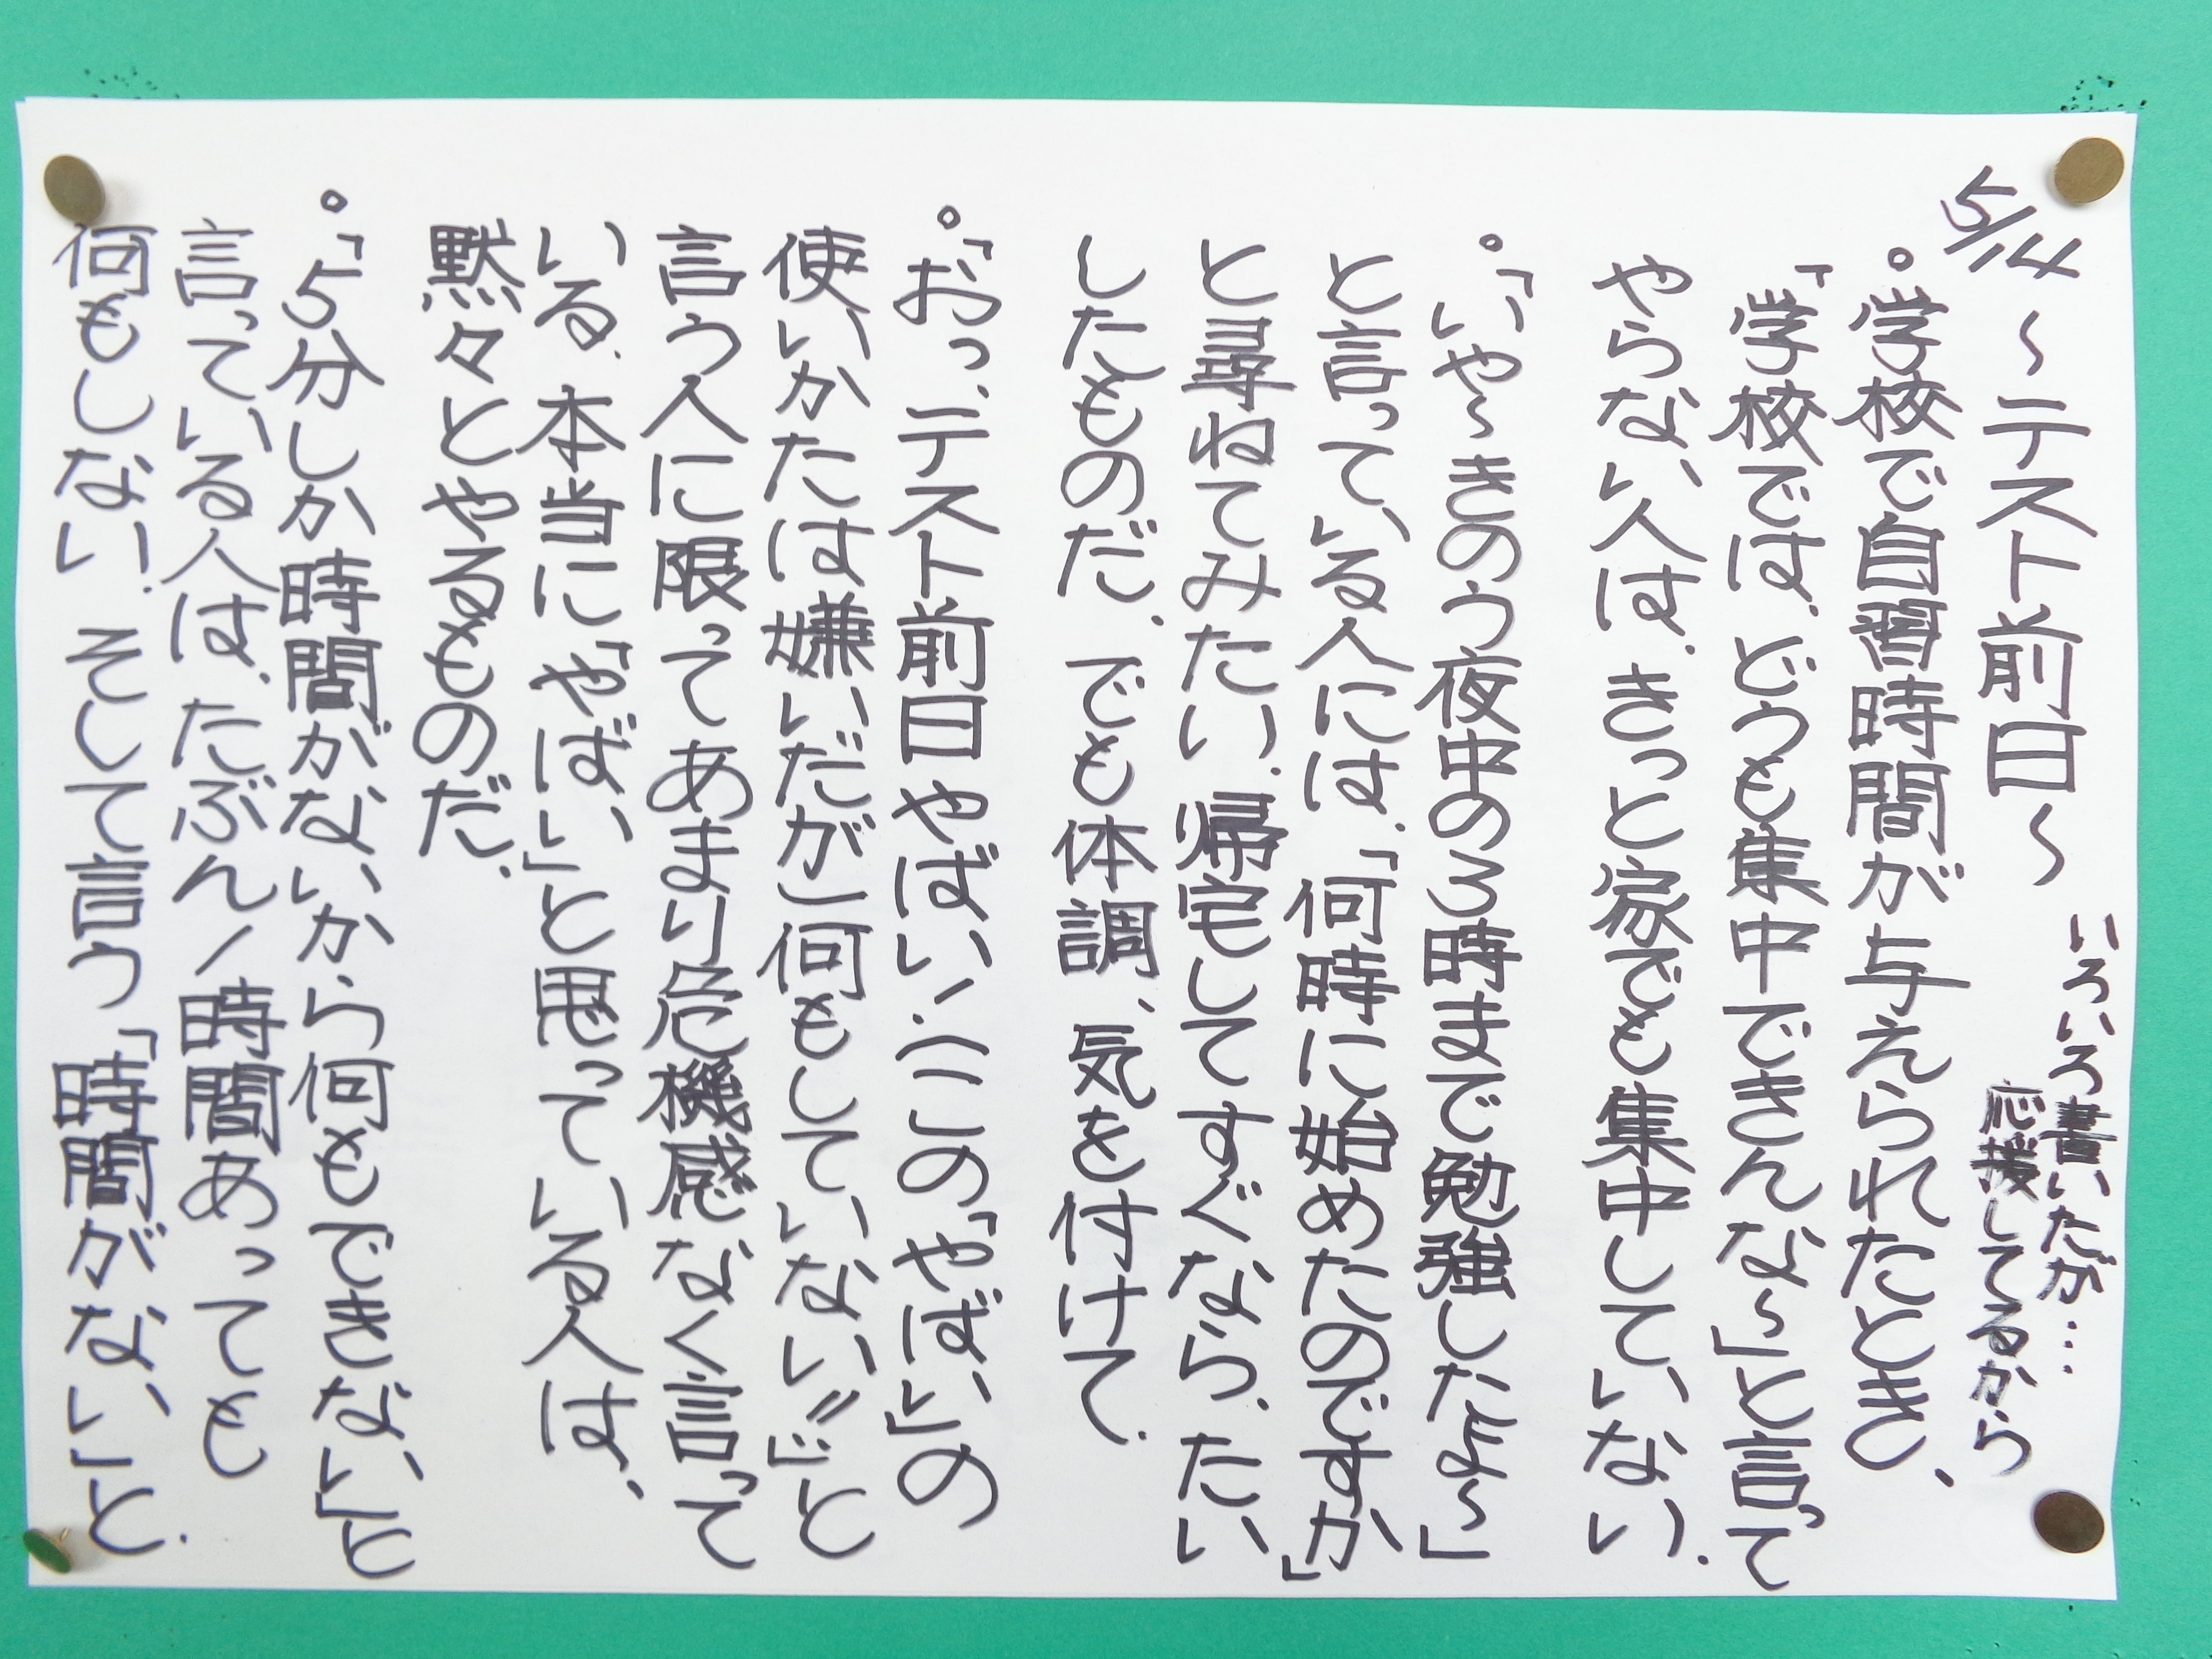 5/14 〜テスト前日〜
いろいろ書いたが…
応援してるから
。学校で自習時間が与えられたとき、
「学校では、どうも集中できんな〜」と言って
やらない人は、きっと家でも集中していない.
。「いや〜きのう夜中の3時まで勉強したよ〜」
と言っている人には、「何時に始めたのですか」
と尋ねてみたい.帰宅してすぐなら、たい
したものだ.でも体調、気を付けて.
。「おっ、テスト前日やばい.(この「やばい」の
使いかたは嫌いだが)何もしていない〃」と
言う人に限ってあまり危機感なく言って
いる.本当に「やばい」と思っている人は、
黙々とやるものだ.
。「5分しか時間がないから何もできない」と
言っている人は、たぶん1時間あっても
何もしない.そして言う「時間がない」と.